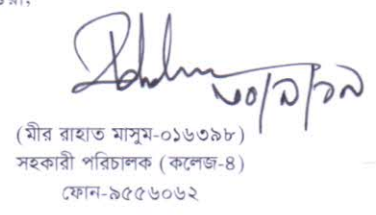 ৩০/৯/১৯
(মীর রাহাত মাসুম-০১৬৩৯৮)
সহকারী পরিচালক (কলেজ-৪)
ফোন-৯৫৫৬০৬২